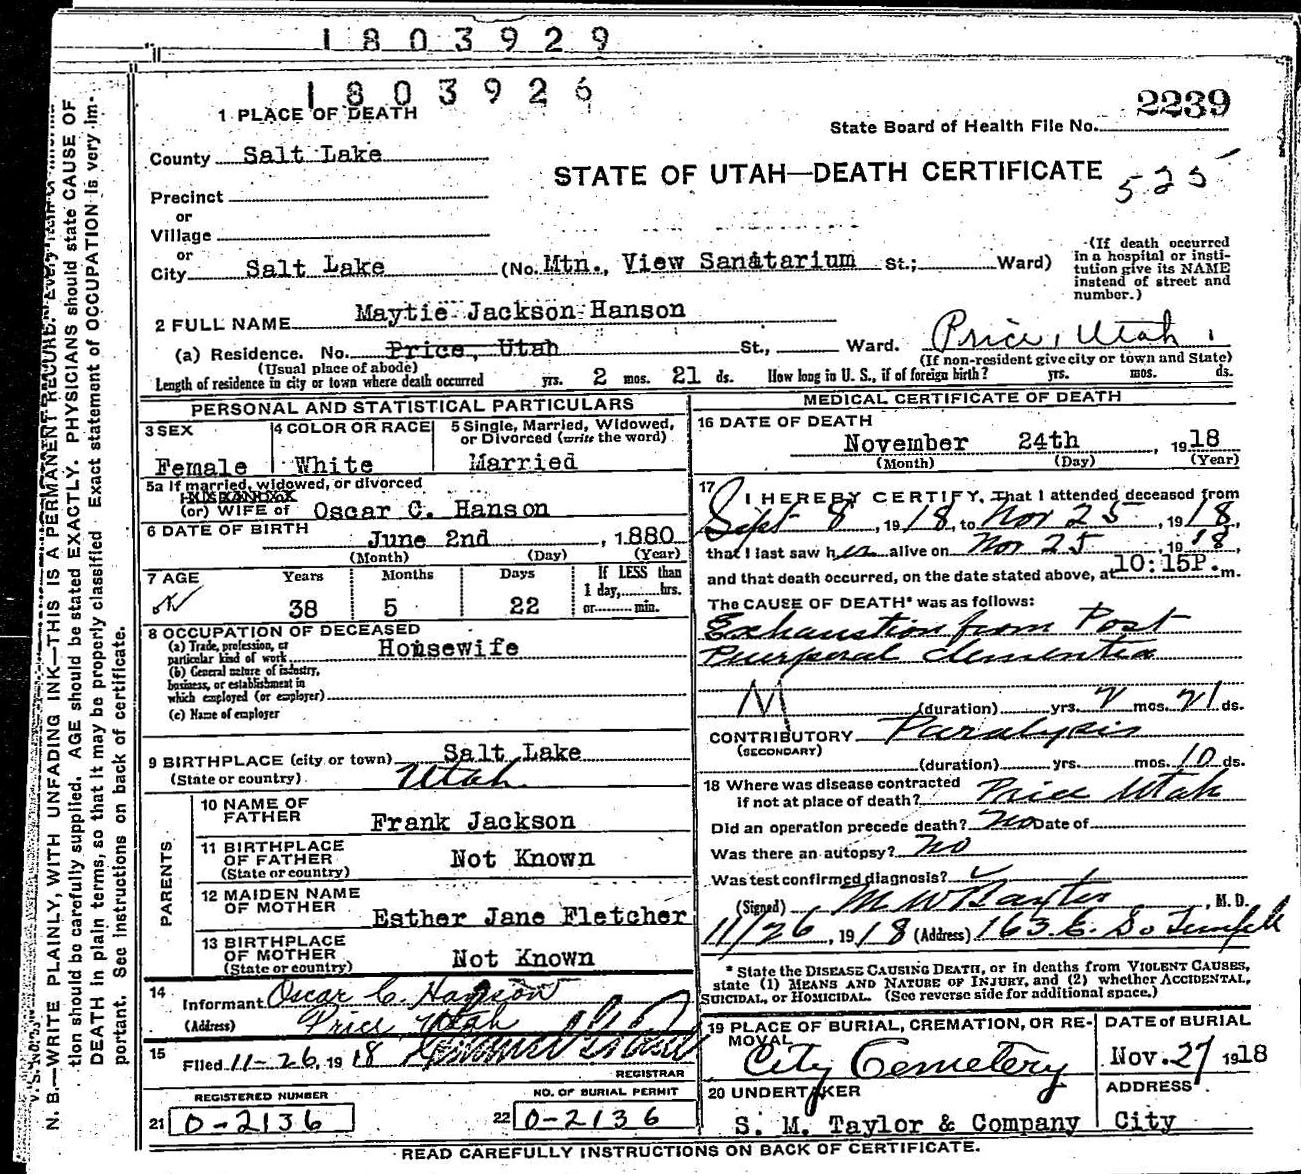 1803929
1803926
2239
1 PLACE OF DEATH
State Board of Health File No.
County Salt Lake
STATE OF UTAH—DEATH CERTIFICATE
525
Precinct
or
Village
or
City Salt Lake (No. Mtn., View Sanatarium St.; Ward)
(If death occurred in a hospital or institution give its NAME instead of street and number.)
2 FULL NAME Maytie Jackson Hanson
(a) Residence. No. Price, Utah St., Ward. Price, Utah
(Usual place of abode) (If non-resident give city or town and State)
Length of residence in city or town where death occurred yrs. 2 mos. 21 ds. How long in U. S., if of foreign birth? yrs. mos. ds.
PERSONAL AND STATISTICAL PARTICULARS
3 SEX Female
4 COLOR OR RACE White
5 Single, Married, Widowed, or Divorced (write the word) Married
5a If married, widowed, or divorced
HUSBAND of
(or) WIFE of Oscar C. Hanson
6 DATE OF BIRTH June 2nd , 1880
(Month) (Day) (Year)
7 AGE Years Months Days If LESS than 1 day, hrs. or min.
38 5 22
8 OCCUPATION OF DECEASED
(a) Trade, profession, or particular kind of work Housewife
(b) General nature of industry, business, or establishment in which employed (or employer)
(c) Name of employer
9 BIRTHPLACE (city or town) Salt Lake
(State or country) Utah
PARENTS
10 NAME OF FATHER Frank Jackson
11 BIRTHPLACE OF FATHER (State or country) Not Known
12 MAIDEN NAME OF MOTHER Esther Jane Fletcher
13 BIRTHPLACE OF MOTHER (State or country) Not Known
14 Informant Oscar C. Hanson
(Address) Price Utah
15 Filed 11-26, 1918
REGISTRAR
REGISTERED NUMBER
21 O-2136
NO. OF BURIAL PERMIT
22 O-2136
MEDICAL CERTIFICATE OF DEATH
16 DATE OF DEATH
November 24th , 1918
(Month) (Day) (Year)
17 I HEREBY CERTIFY, That I attended deceased from
Sept 8, 1918, to Nov 25, 1918,
that I last saw her alive on Nov 25, 1918,
and that death occurred, on the date stated above, at 10:15P.m.
The CAUSE OF DEATH* was as follows:
Exhaustion from Post
Puerperal dementia
(duration) yrs. 2 mos. 21 ds.
CONTRIBUTORY Paralysis
(SECONDARY)
(duration) yrs. mos. 10 ds.
18 Where was disease contracted
if not at place of death? Price Utah
Did an operation precede death? No Date of
Was there an autopsy? No
Was test confirmed diagnosis?
(Signed) M W Baxter, M. D.
11/26, 1918 (Address) 163 E. So Temple
* State the DISEASE CAUSING DEATH, or in deaths from VIOLENT CAUSES,
state (1) MEANS AND NATURE OF INJURY, and (2) whether ACCIDENTAL,
SUICIDAL, or HOMICIDAL. (See reverse side for additional space.)
19 PLACE OF BURIAL, CREMATION, OR REMOVAL City Cemetery
DATE of BURIAL Nov. 27 1918
20 UNDERTAKER S. M. Taylor & Company
ADDRESS City
READ CAREFULLY INSTRUCTIONS ON BACK OF CERTIFICATE.
N. B.—WRITE PLAINLY, WITH UNFADING INK—THIS IS A PERMANENT RECORD. Every item of
tion should be carefully supplied. AGE should be stated EXACTLY. PHYSICIANS should state CAUSE OF
DEATH in plain terms, so that it may be properly classified Exact statement of OCCUPATION is very im-
portant. See instructions on back of certificate.